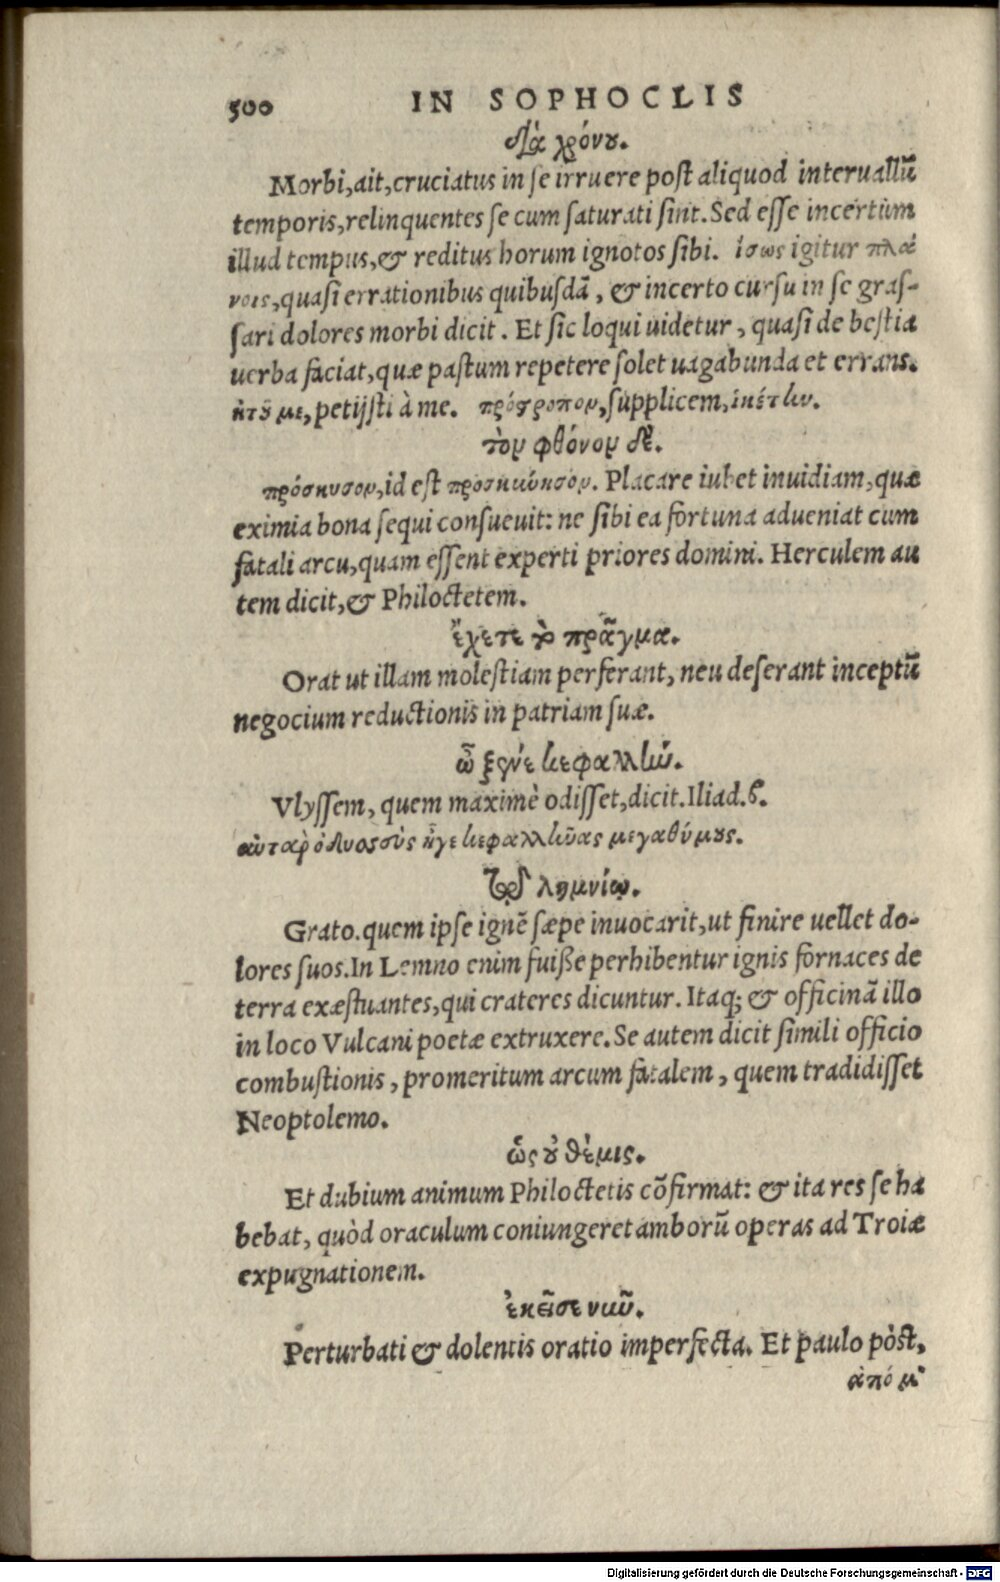 500 IN SOPHOCLIS
διὰ χρόνου.
Morbi, ait, cruciatus in se irruere post aliquod interuallũ
temporis, relinquentes se cum saturati sint. Sed esse incertum
illud tempus, & reditus horum ignotos sibi. ἴσως igitur πλά
νοις, quasi errationibus quibusdã, & incerto cursu in se gras-
sari dolores morbi dicit. Et sic loqui uidetur, quasi de bestia
uerba faciat, quæ pastum repetere solet uagabunda et errans.
ᾔτου με, petijsti à me. πρόστροπον, supplicem, ἱκέτην.
τὸν φθόνον δὲ.
πρόσκυσον, id est προσκύνησον. Placare iubet inuidiam, quæ
eximia bona sequi consueuit: ne sibi ea fortuna adueniat cum
fatali arcu, quam essent experti priores domini. Herculem au
tem dicit, & Philoctetem.
ἔχετε τὸ πρᾶγμα.
Orat ut illam molestiam perferant, neu deserant inceptũ
negocium reductionis in patriam suæ.
ὦ ξένε κεφαλλήν.
Vlyssem, quem maximè odisset, dicit. Iliad. β.
αὐτὰρ ὀδυσσεὺς ἦγε κεφαλλῆνας μεγαθύμους.
τῷδε λημνίῳ.
Grato. quem ipse ignẽ sæpe inuocarit, ut finire uellet do-
lores suos. In Lemno enim fuiße perhibentur ignis fornaces de
terra exæstuantes, qui crateres dicuntur. Itaq; & officinã illo
in loco Vulcani poetæ extruxere. Se autem dicit simili officio
combustionis, promeritum arcum fatalem, quem tradidisset
Neoptolemo.
ὡς οὐ θέμις.
Et dubium animum Philoctetis cõfirmat: & ita res se ha
bebat, quòd oraculum coniungeret amborũ operas ad Troiæ
expugnationem.
ἐκεῖσε νῦν.
Perturbati & dolentis oratio imperfecta. Et paulo pòst,
ἀπό μ'
Digitalisierung gefördert durch die Deutsche Forschungsgemeinschaft - DFG